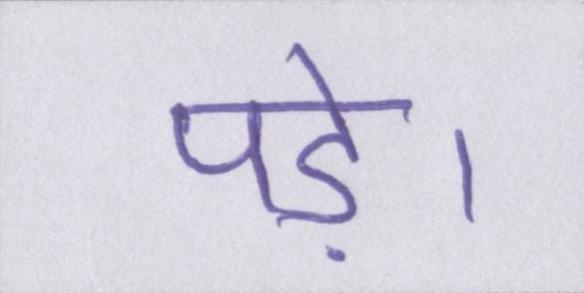 पड़े।